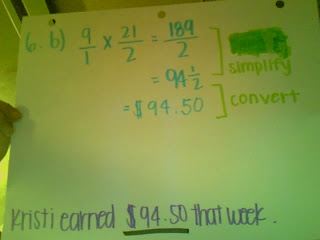 6. b) 9/1 x 21/2 = 189/2
simplify
= 94 1/2
= $94.50
convert
Kristi earned $94.50 that week.